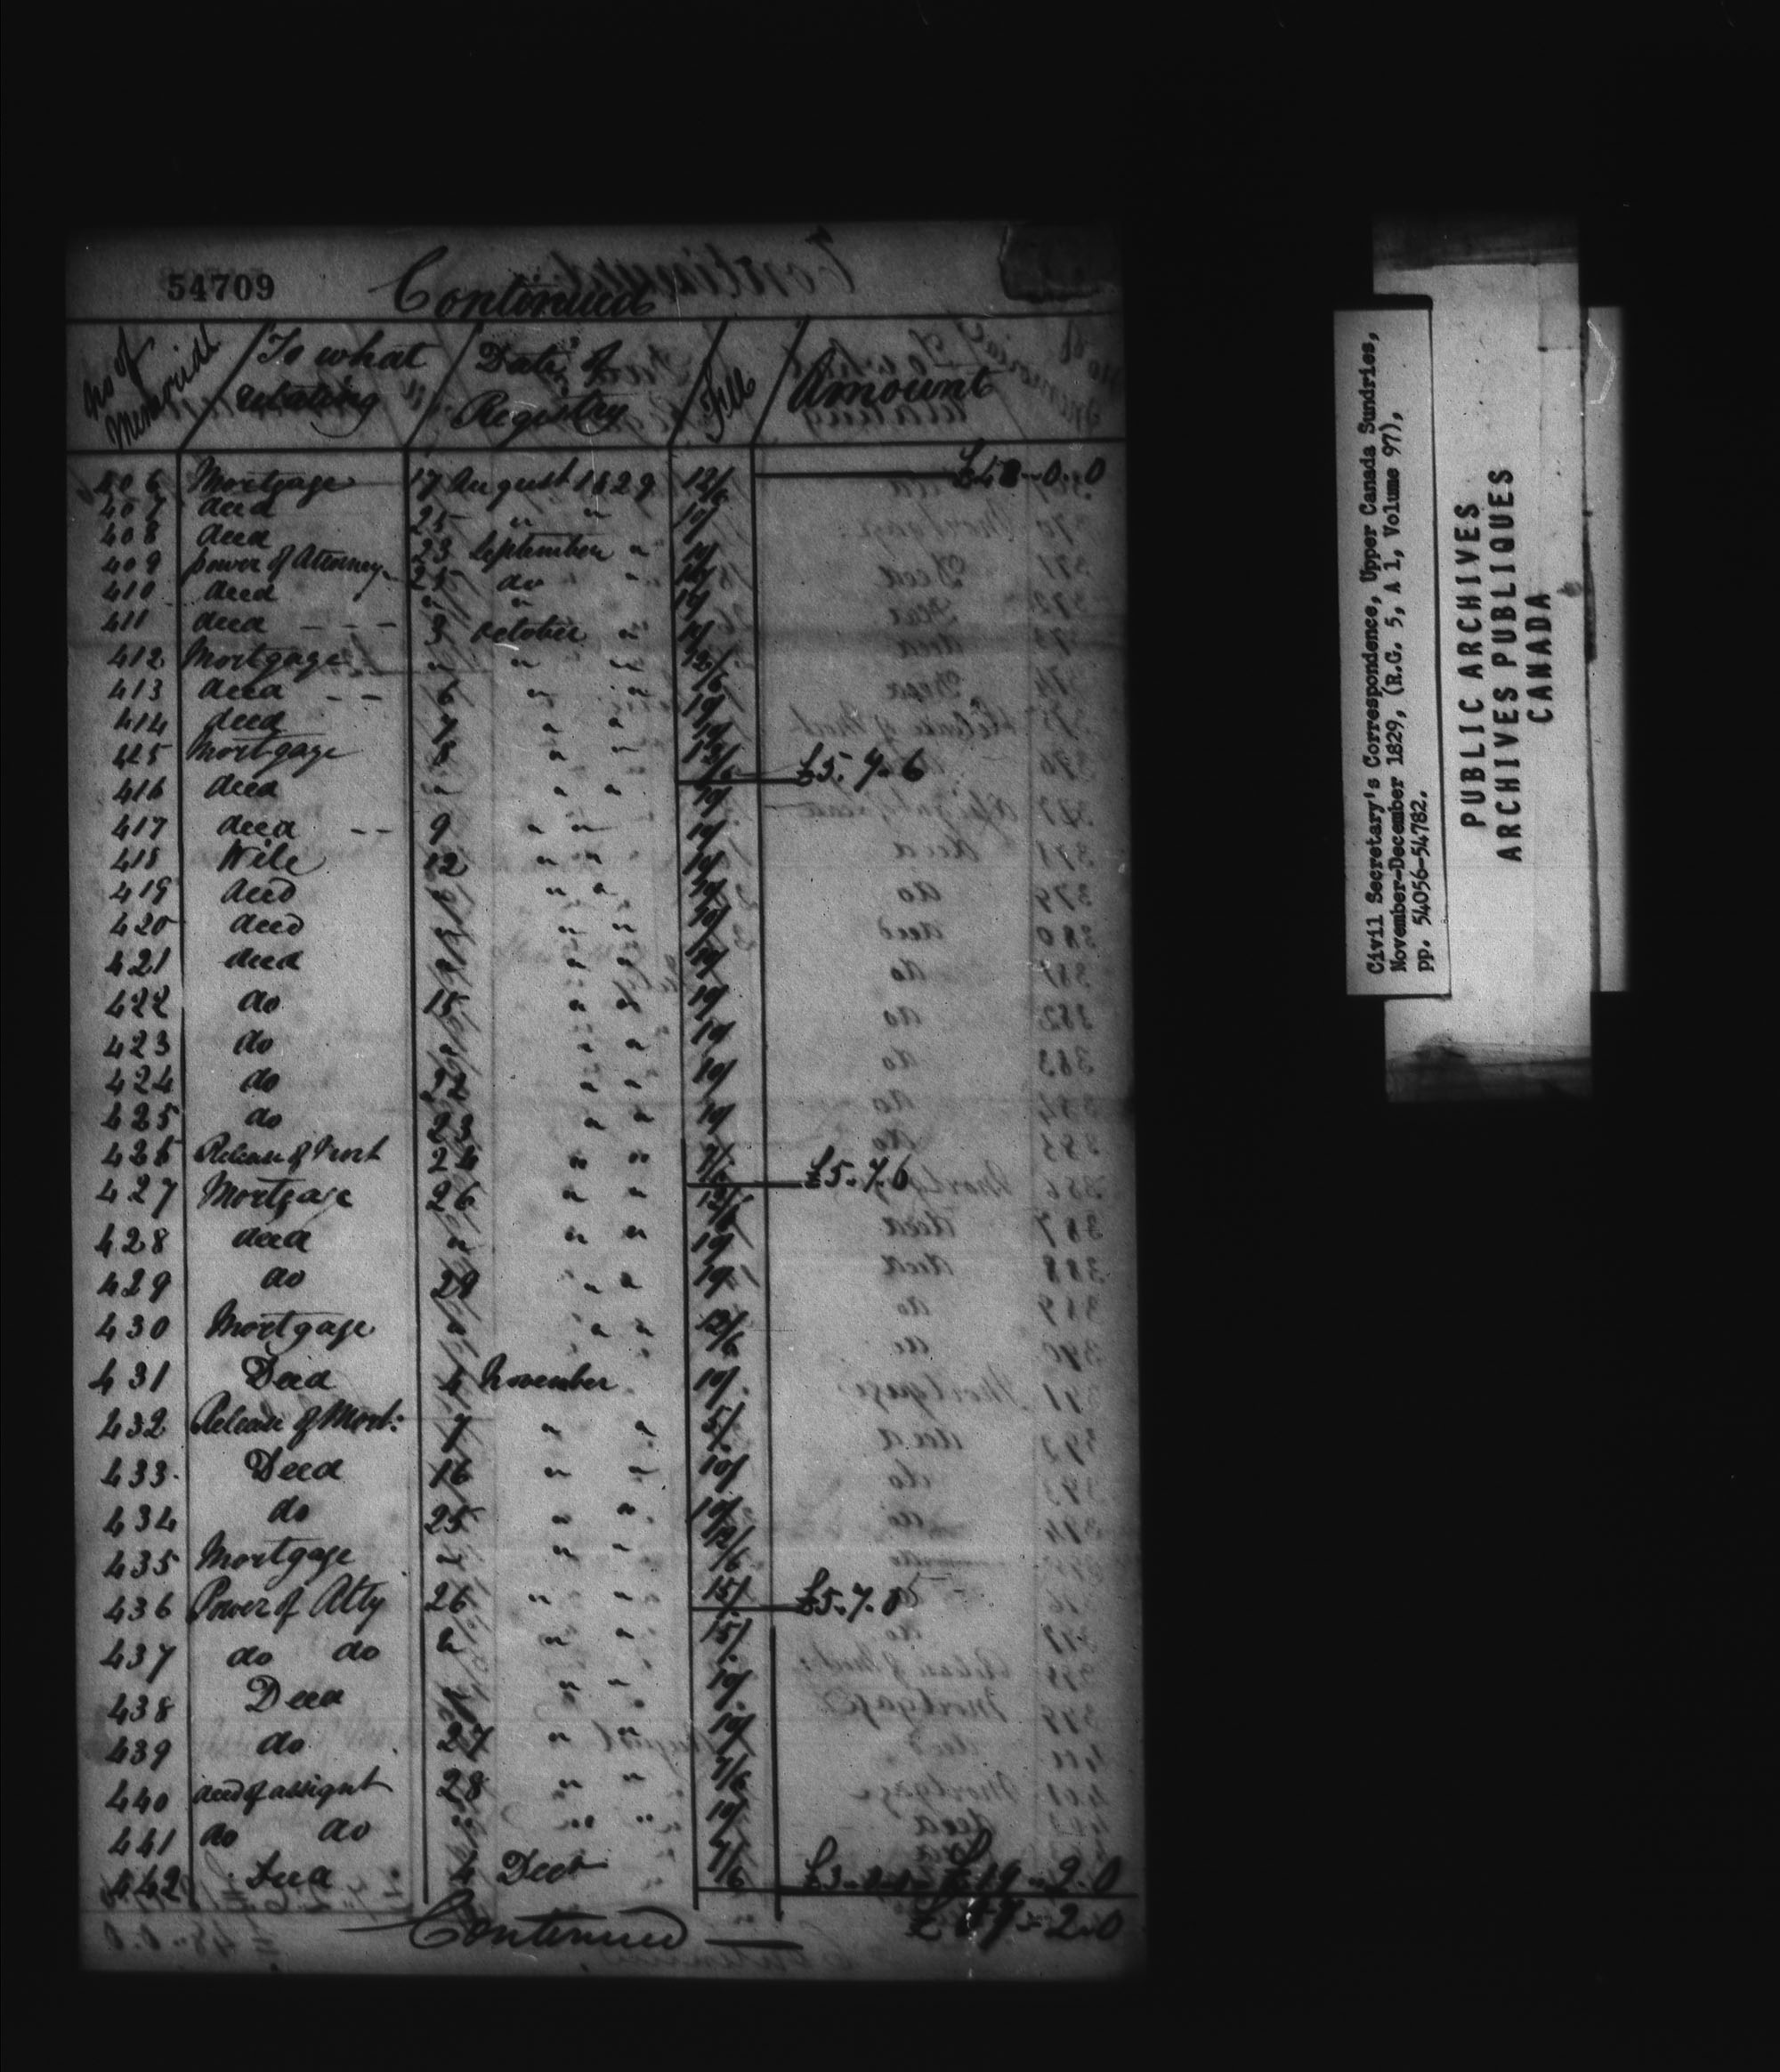 54709
Continued
No of Memorials To what relating Date of Registry Fees Amount
406 Mortgage 17 August 1829 12/6 £48-0-0
407 deed 25 " " 10/
408 deed 23 September " 10/
409 power of Attorney 25 do "
410 deed " " 10/
411 deed - - - 3 October " 10/
412 Mortgage " " " 12/6
413 deed - - 6 " " 10/
414 deed 7 " " 10/
425 Mortgage 8 " " 12/6 £5.7.6
416 deed " " " 10/
417 deed - - 9 " " 10/
418 Wile 12 " " 10/
419 deed " " 10/
420 deed " " 10/
421 deed " " 10/
422 do 15 " " 10/
423 do " " " 10/
424 do 22 " " 10/
425 do 23 " " 10/
426 Release of Mort 24 " " £5.7.6
427 Mortgage 26 " " 12/6
428 deed " " " 10/
429 do 29 " " 10/
430 Mortgage " " " 12/6
431 Deed 4 November 10/
432 Release of Mort: 7 " " 5/
433 Deed 16 " " 10/
434 do 25 " " 10/
435 Mortgage " " " 12/6
436 Power of Atty 26 " " 15/ £5.7.0
437 do do " " " 15/
438 Deed " " " 10/
439 do 27 " " 10/
440 deed of assignt 28 " " 7/6
441 do do " " " 10/
442 Deed 4 Decr 7/6 £3 £19-2.0
£67-2.0
Continued
Civil Secretary's Correspondence, Upper Canada Sundries,
November-December 1829, (R.G. 5, A 1, Volume 97),
pp. 54056-54782.
PUBLIC ARCHIVES
ARCHIVES PUBLIQUES
CANADA